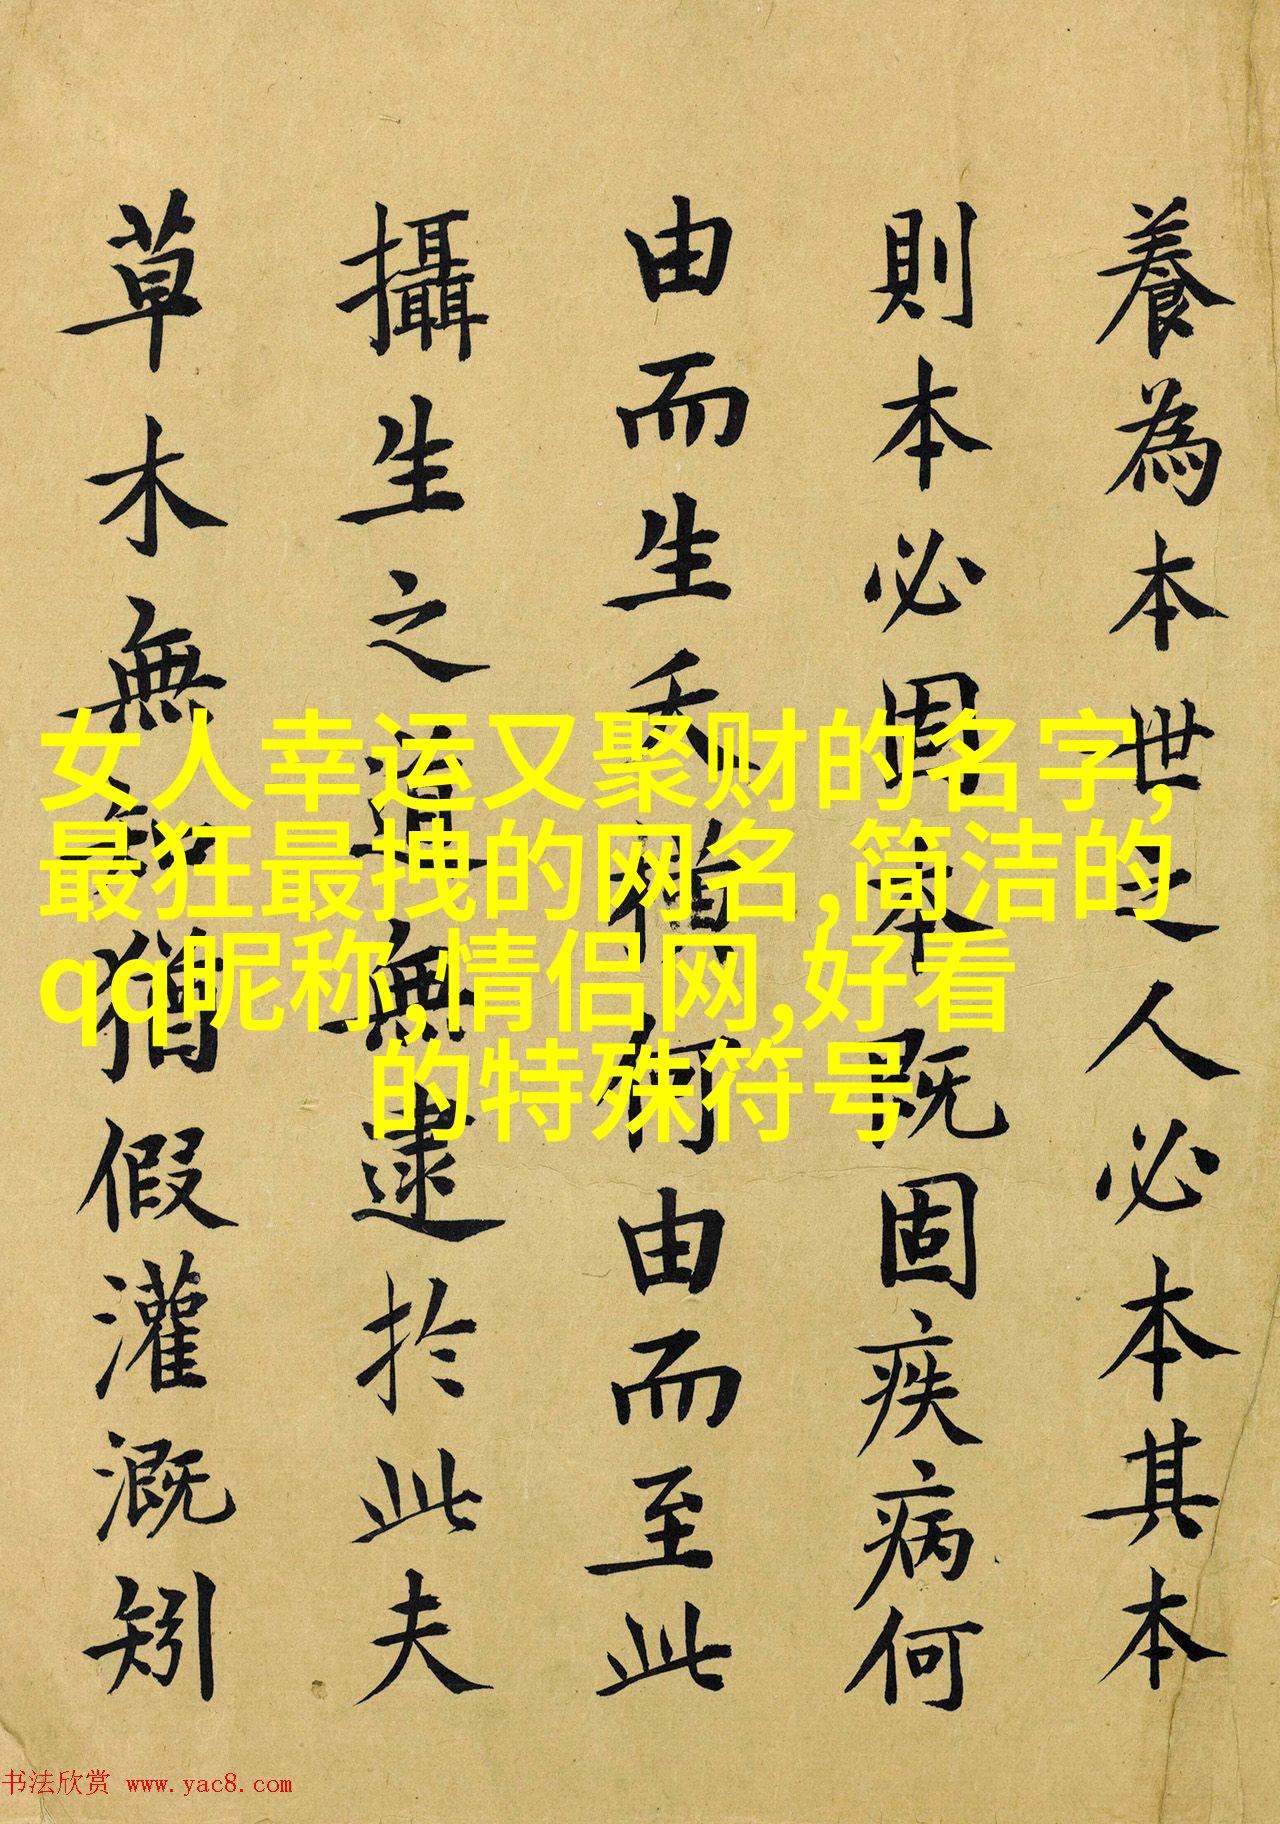 養為本世之人必本其本
則本必固本既固疾病何
由而生夭橫何由而至此
攝生之道無逮於此夫
草木無知猶假灌溉矧
女人幸运又聚财的名字,
最狂最拽的网名,简洁的
qq昵称,情侣网,好看
的特殊符号
书法欣赏 www.yac8.com